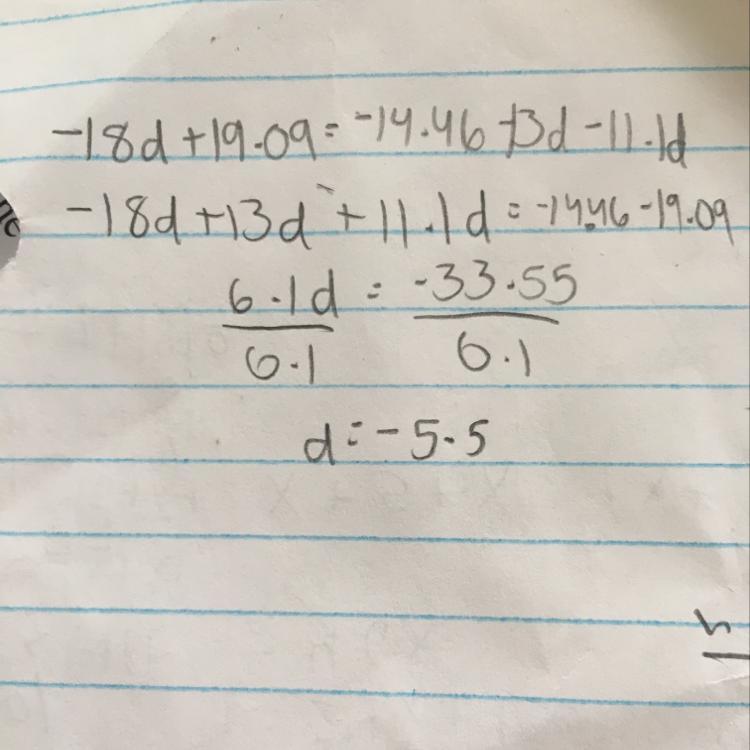 -18d+19.09=-14.46-13d-11.1d
-18d+13d+11.1d=-14.46-19.09
6.1d = -33.55
6.1 6.1
d=-5.5